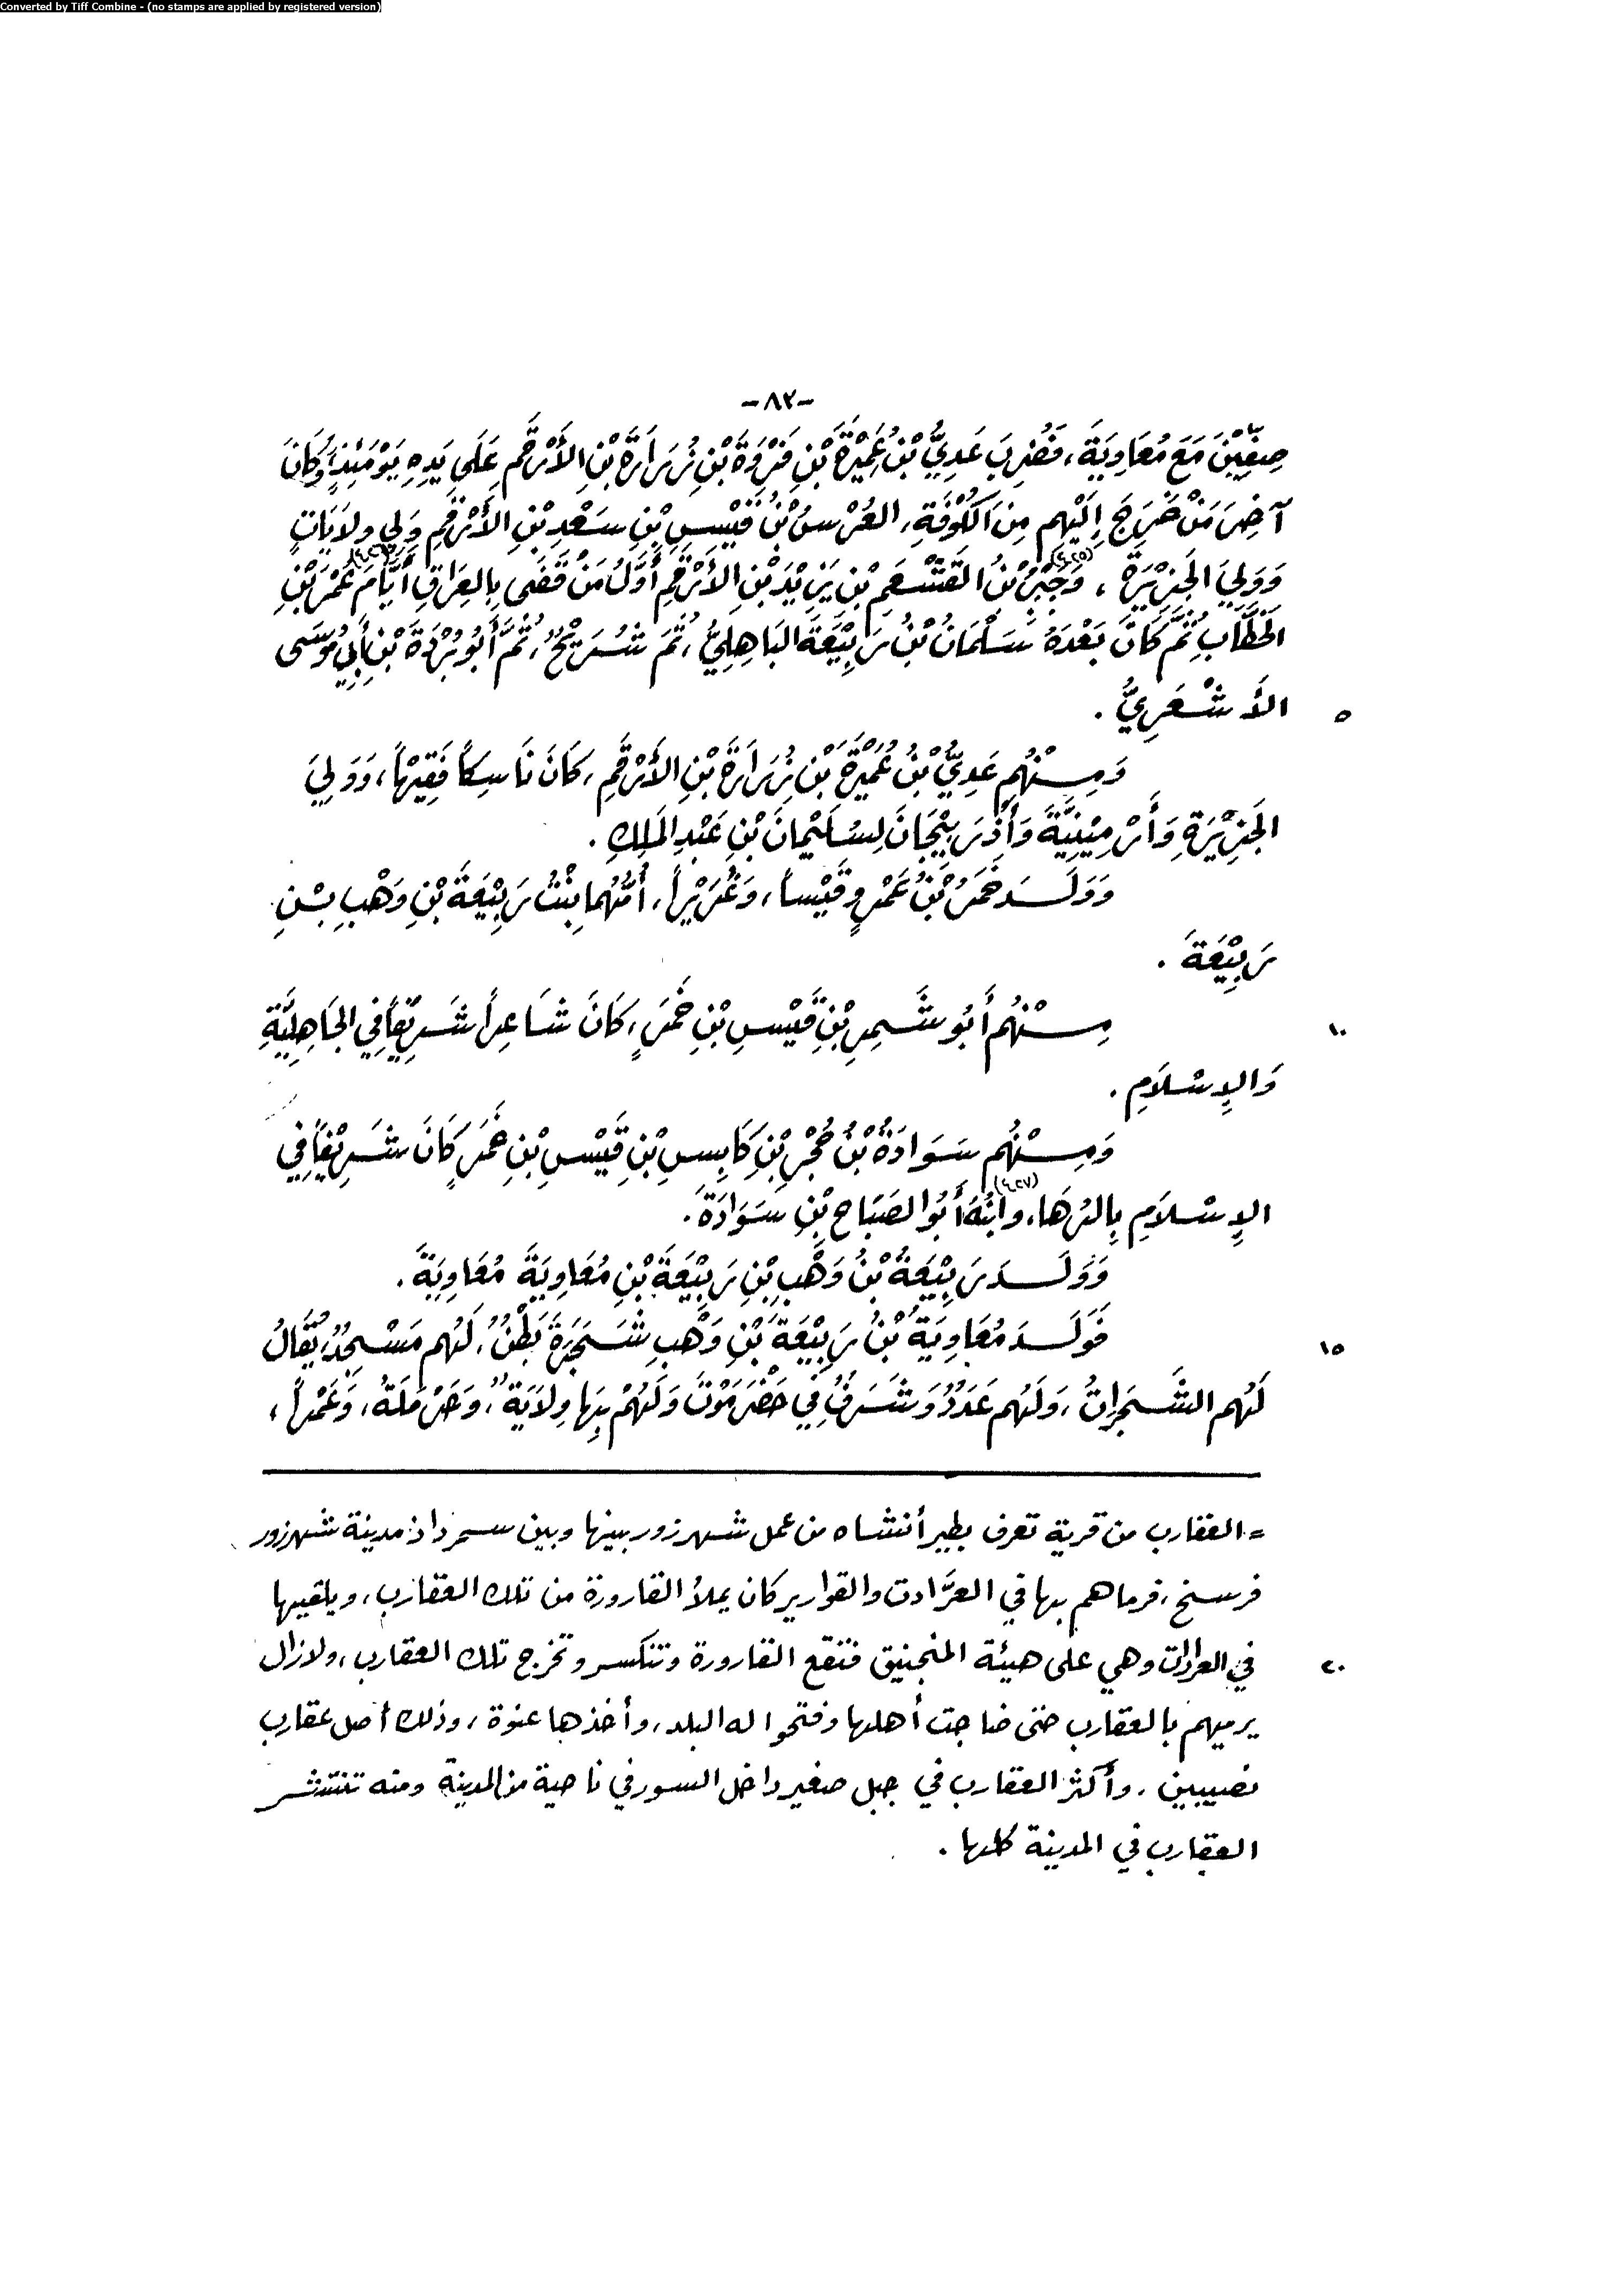 Converted by Tiff Combine - (no stamps are applied by registered version)
-٨٢-
صِفِّيْنَ مَعَ مُعَاوِيَةَ، فَضُرِبَ عَدِيُّ بْنُ عَمِيْرَةَ بْنِ فَرْوَةَ بْنِ زُرَارَةَ بْنِ الأَرْقَمِ عَلَى يَدِهِ يَوْمَئِذٍ، وَكَانَ
آخِرَ مَنْ خَرَجَ إِلَيْهِم مِنَ الكُوْفَةِ، العُرْسُ بْنُ قَيْسِ بْنِ سَعْدِ بْنِ الأَرْقَمِ وَلِي وِلاَيَاتٍ
وَوَلِيَ الجَزِيْرَةَ ، (٤٢٥) وَجَبْرُ بْنُ القَشْعَمِ بْنِ يَزِيْدَ بْنِ الأَرْقَمِ أَوَّلُ مَنْ قَضَى بِالعِرَاقِ (٤٢٦) أَيَّامَ عُمَرَ بْنِ
الخَطَّابِ ثُمَّ كَانَ بَعْدَهُ سَلْمَانُ بْنُ رَبِيْعَةَ البَاهِلِيُّ، ثُمَّ شُرَيْحٌ، ثُمَّ أَبُو بُرْدَةَ بْنِ أَبِي مُوْسَى
الأَشْعَرِيُّ .
٥
وَمِنْهُم عَدِيُّ بْنُ عُمَيْرَةَ بْنِ زُرَارَةَ بْنِ الأَرْقَمِ، كَانَ نَاسِكاً فَقِيْهاً، وَوَلِيَ
الجَزِيْرَةِ وَأَرْمِيْنِيَّةَ وَأَذْرَبِيْجَانَ لِسُلَيْمَانَ بْنِ عَبْدِ المَلِكِ .
وَوَلَدَ خَمَرُ بْنُ عَمْرٍو قَيْساً، وَعُزَيْراً، أُمُّهُمَا بِنْتُ رَبِيْعَةَ بْنِ وَهْبِ بْنِ
رَبِيْعَةَ .
مِنْهُم أَبُو شَمِرِ بْنِ قَيْسِ بْنِ خَمَرٍ، كَانَ شَاعِراً شَرِيْفاً فِي الجَاهِلِيَّةِ
١٠
وَالإِسْلاَمِ .
وَمِنْهُم سَوَادَةُ بْنُ حُجْرِ بْنِ كَابِسِ بْنِ قَيْسِ بْنِ خَمَرٍ كَانَ شَرِيْفاً فِي
الإِسْلاَمِ بِالرُّهَا، وابْنُهُ (٤٢٧) أَبُو الصَبَاحِ بْنِ سَوَادَةَ .
وَوَلَدَ رَبِيْعَةُ بْنُ وَهْبِ بْنِ رَبِيْعَةَ بْنِ مُعَاوِيَةَ مُعَاوِيَةَ .
فَوَلَدَ مُعَاوِيَةُ بْنُ رَبِيْعَةَ بْنِ وَهْبِ شَجَرَةَ بَطْنٌ، لَهُم مَسْجِدٌ، يُقَالُ
١٥
لَهُم الشَّجَرَاتُ، وَلَهُم عَدَدٌ وَشَرَفٌ فِي حَضْرَمَوْتَ وَلَهُمْ بِهَا وِلاَيَةٌ، وَحَرْمَلَةَ، وَعَمْراً،
= العقارب من قرية تعرف بطيرأنشاه من عمل شهرزور بينها وبين سمرداذ مدينة شهرزور
فرسخ، فرماهم بها في العرَّادت والقوارير كان يملأ القارورة من تلك العقارب، ويلقيها
في العرادات وهي على هيئة المنجنيق فتقع القارورة وتنكسر وتخرج تلك العقارب، ولازال
٢٠
يرميهم بالعقارب حتى ضاجت أهلها وفتحوا له البلد، وأخذها عنوة، وذلك أصل عقارب
نصيبين، وأكثر العقارب في جبل صغير داخل السور في ناحية من المدينة ومنه تنتشر
العقارب في المدينة كلها .